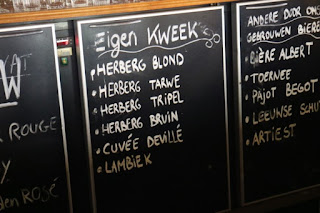 VAT
W
ROUGE
Y
den ROSÉ
Eigen KWEEK
• HERBERG BLOND
• HERBERG TARWE
• HERBERG TRIPEL
• HERBERG BRUIN
• CUVÉE DEVILLÉ
• LAMBIEK
ANDERE DOOR ONS
GEBROUWEN BIERE
• BIÈRE ALBERT
• TOERNEE
• PAJOT BEGOT
• LEEUNSE SCHUT
• ARTIEST